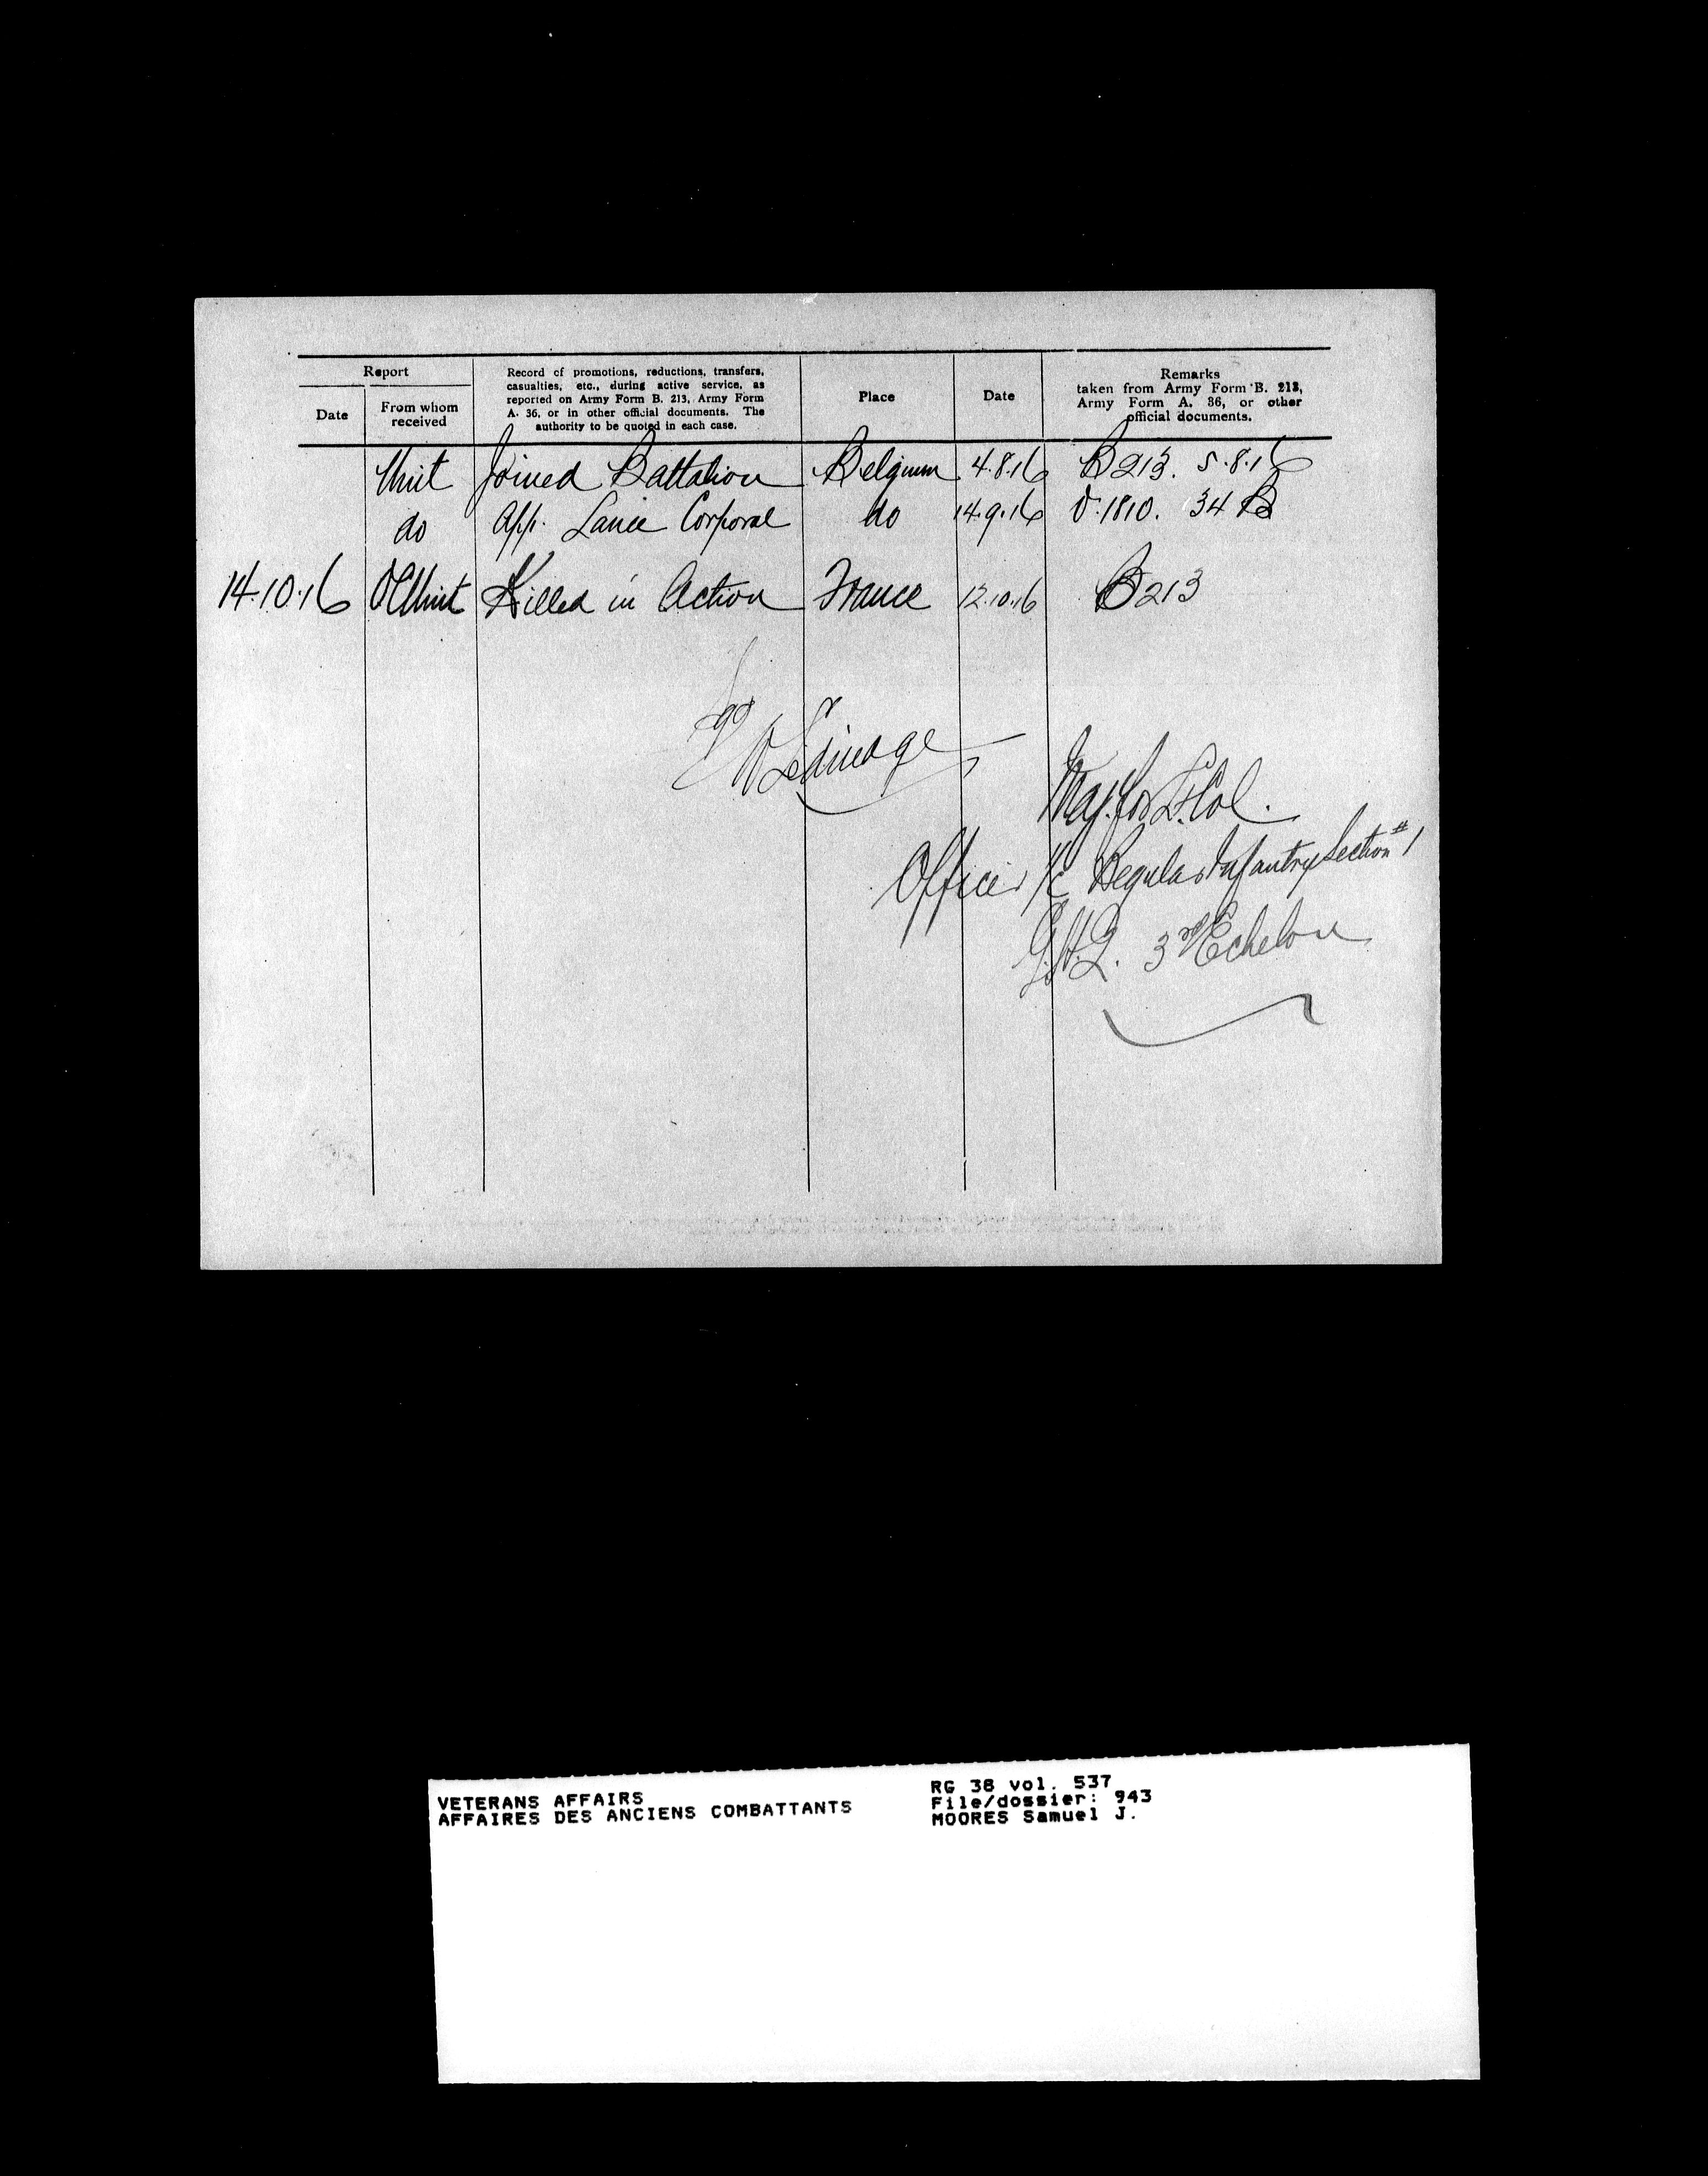 Report
Date
From whom received
Record of promotions, reductions, transfers,
casualties, etc., during active service, as
reported on Army Form B. 213, Army Form
A. 36, or in other official documents. The
authority to be quoted in each case.
Place
Date
Remarks
taken from Army Form B. 213,
Army Form A. 36, or other
official documents.
Unit Joined Battalion Belgium 4.8.16 B213. 5.8.16
do App. Lance Corporal do 14.9.16 O.1810. 34 B
14.10.16 OC Unit Killed in Action France 12.10.16 B213
Sgd
Maj. for Lt. Col.
Officer i/c Regular Infantry Section #1
G.H.Q. 3rd Echelon
VETERANS AFFAIRS
AFFAIRES DES ANCIENS COMBATTANTS
RG 38 vol. 537
File/dossier: 943
MOORES Samuel J.